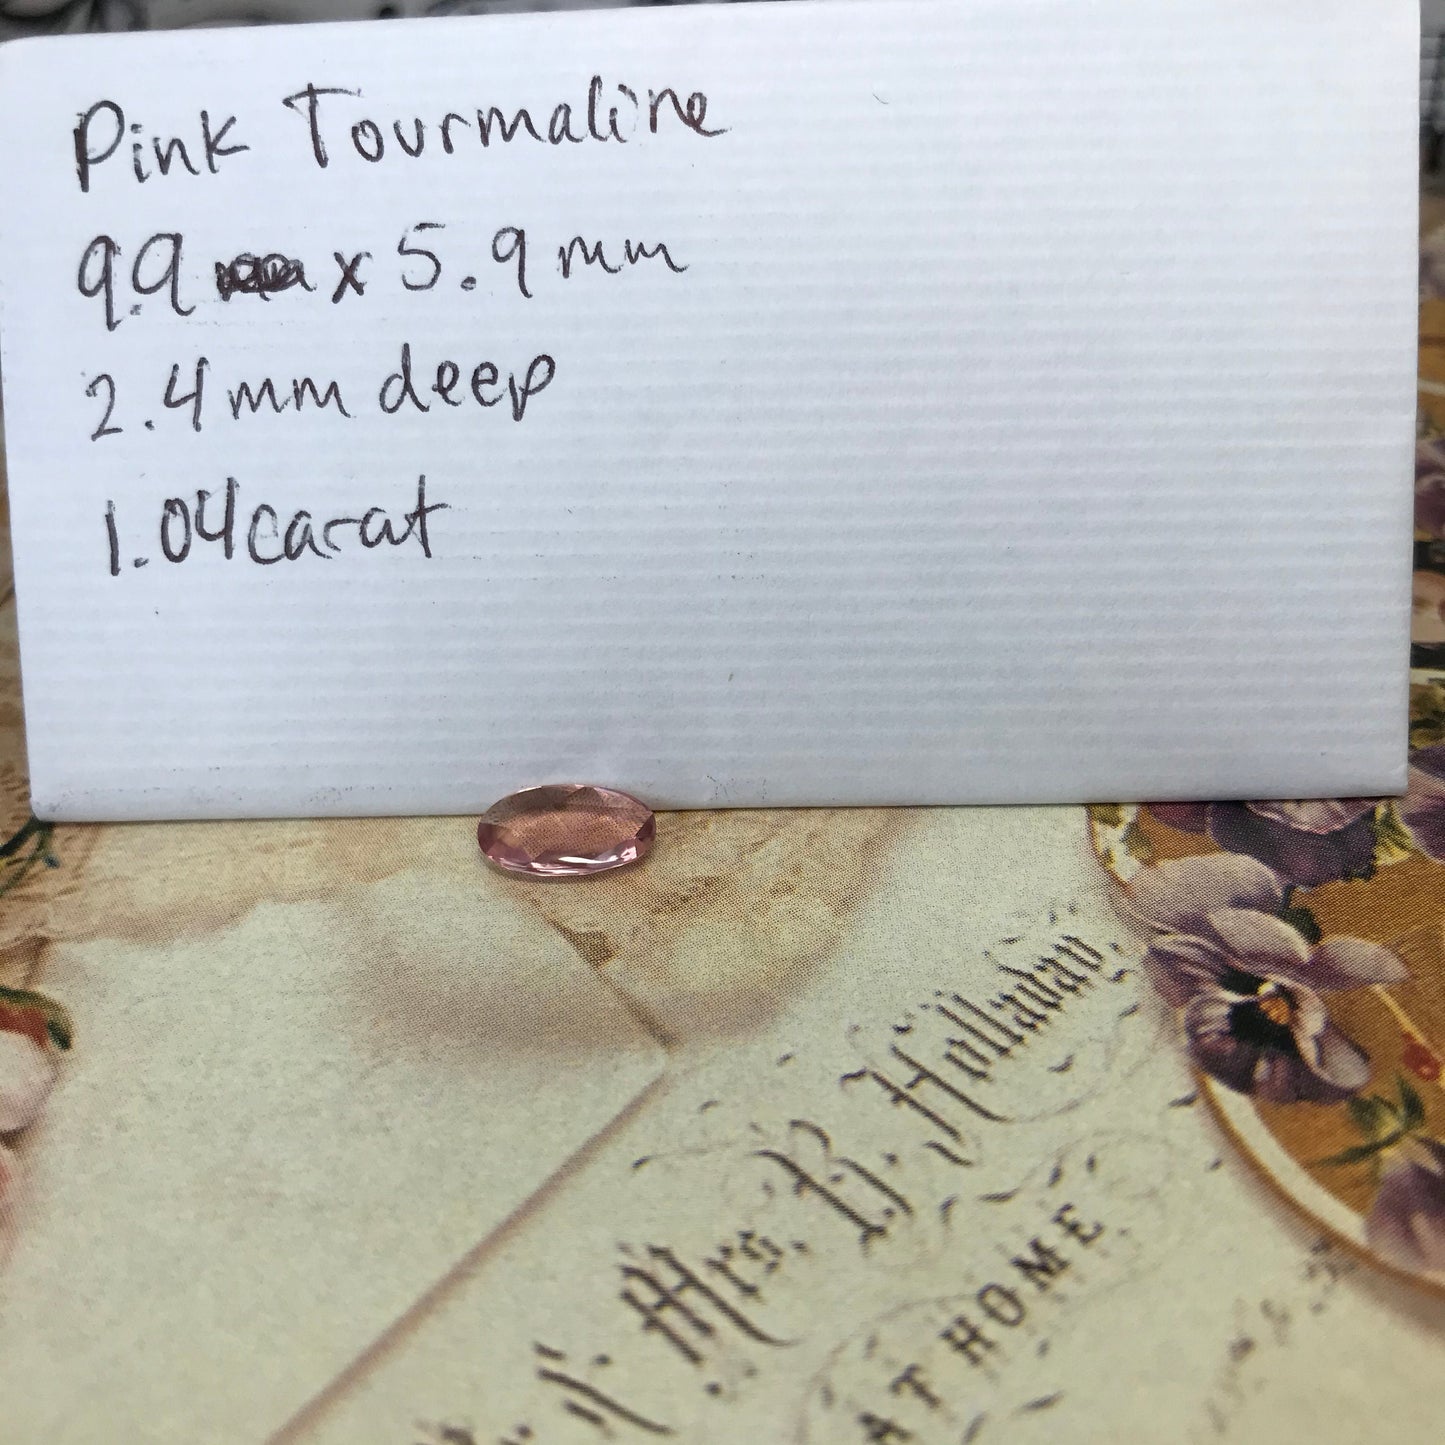 Pink Tourmaline
9.9 x 5.9 mm
2.4mm deep
1.04 carat
Mrs. B. Holladay,
AT HOME